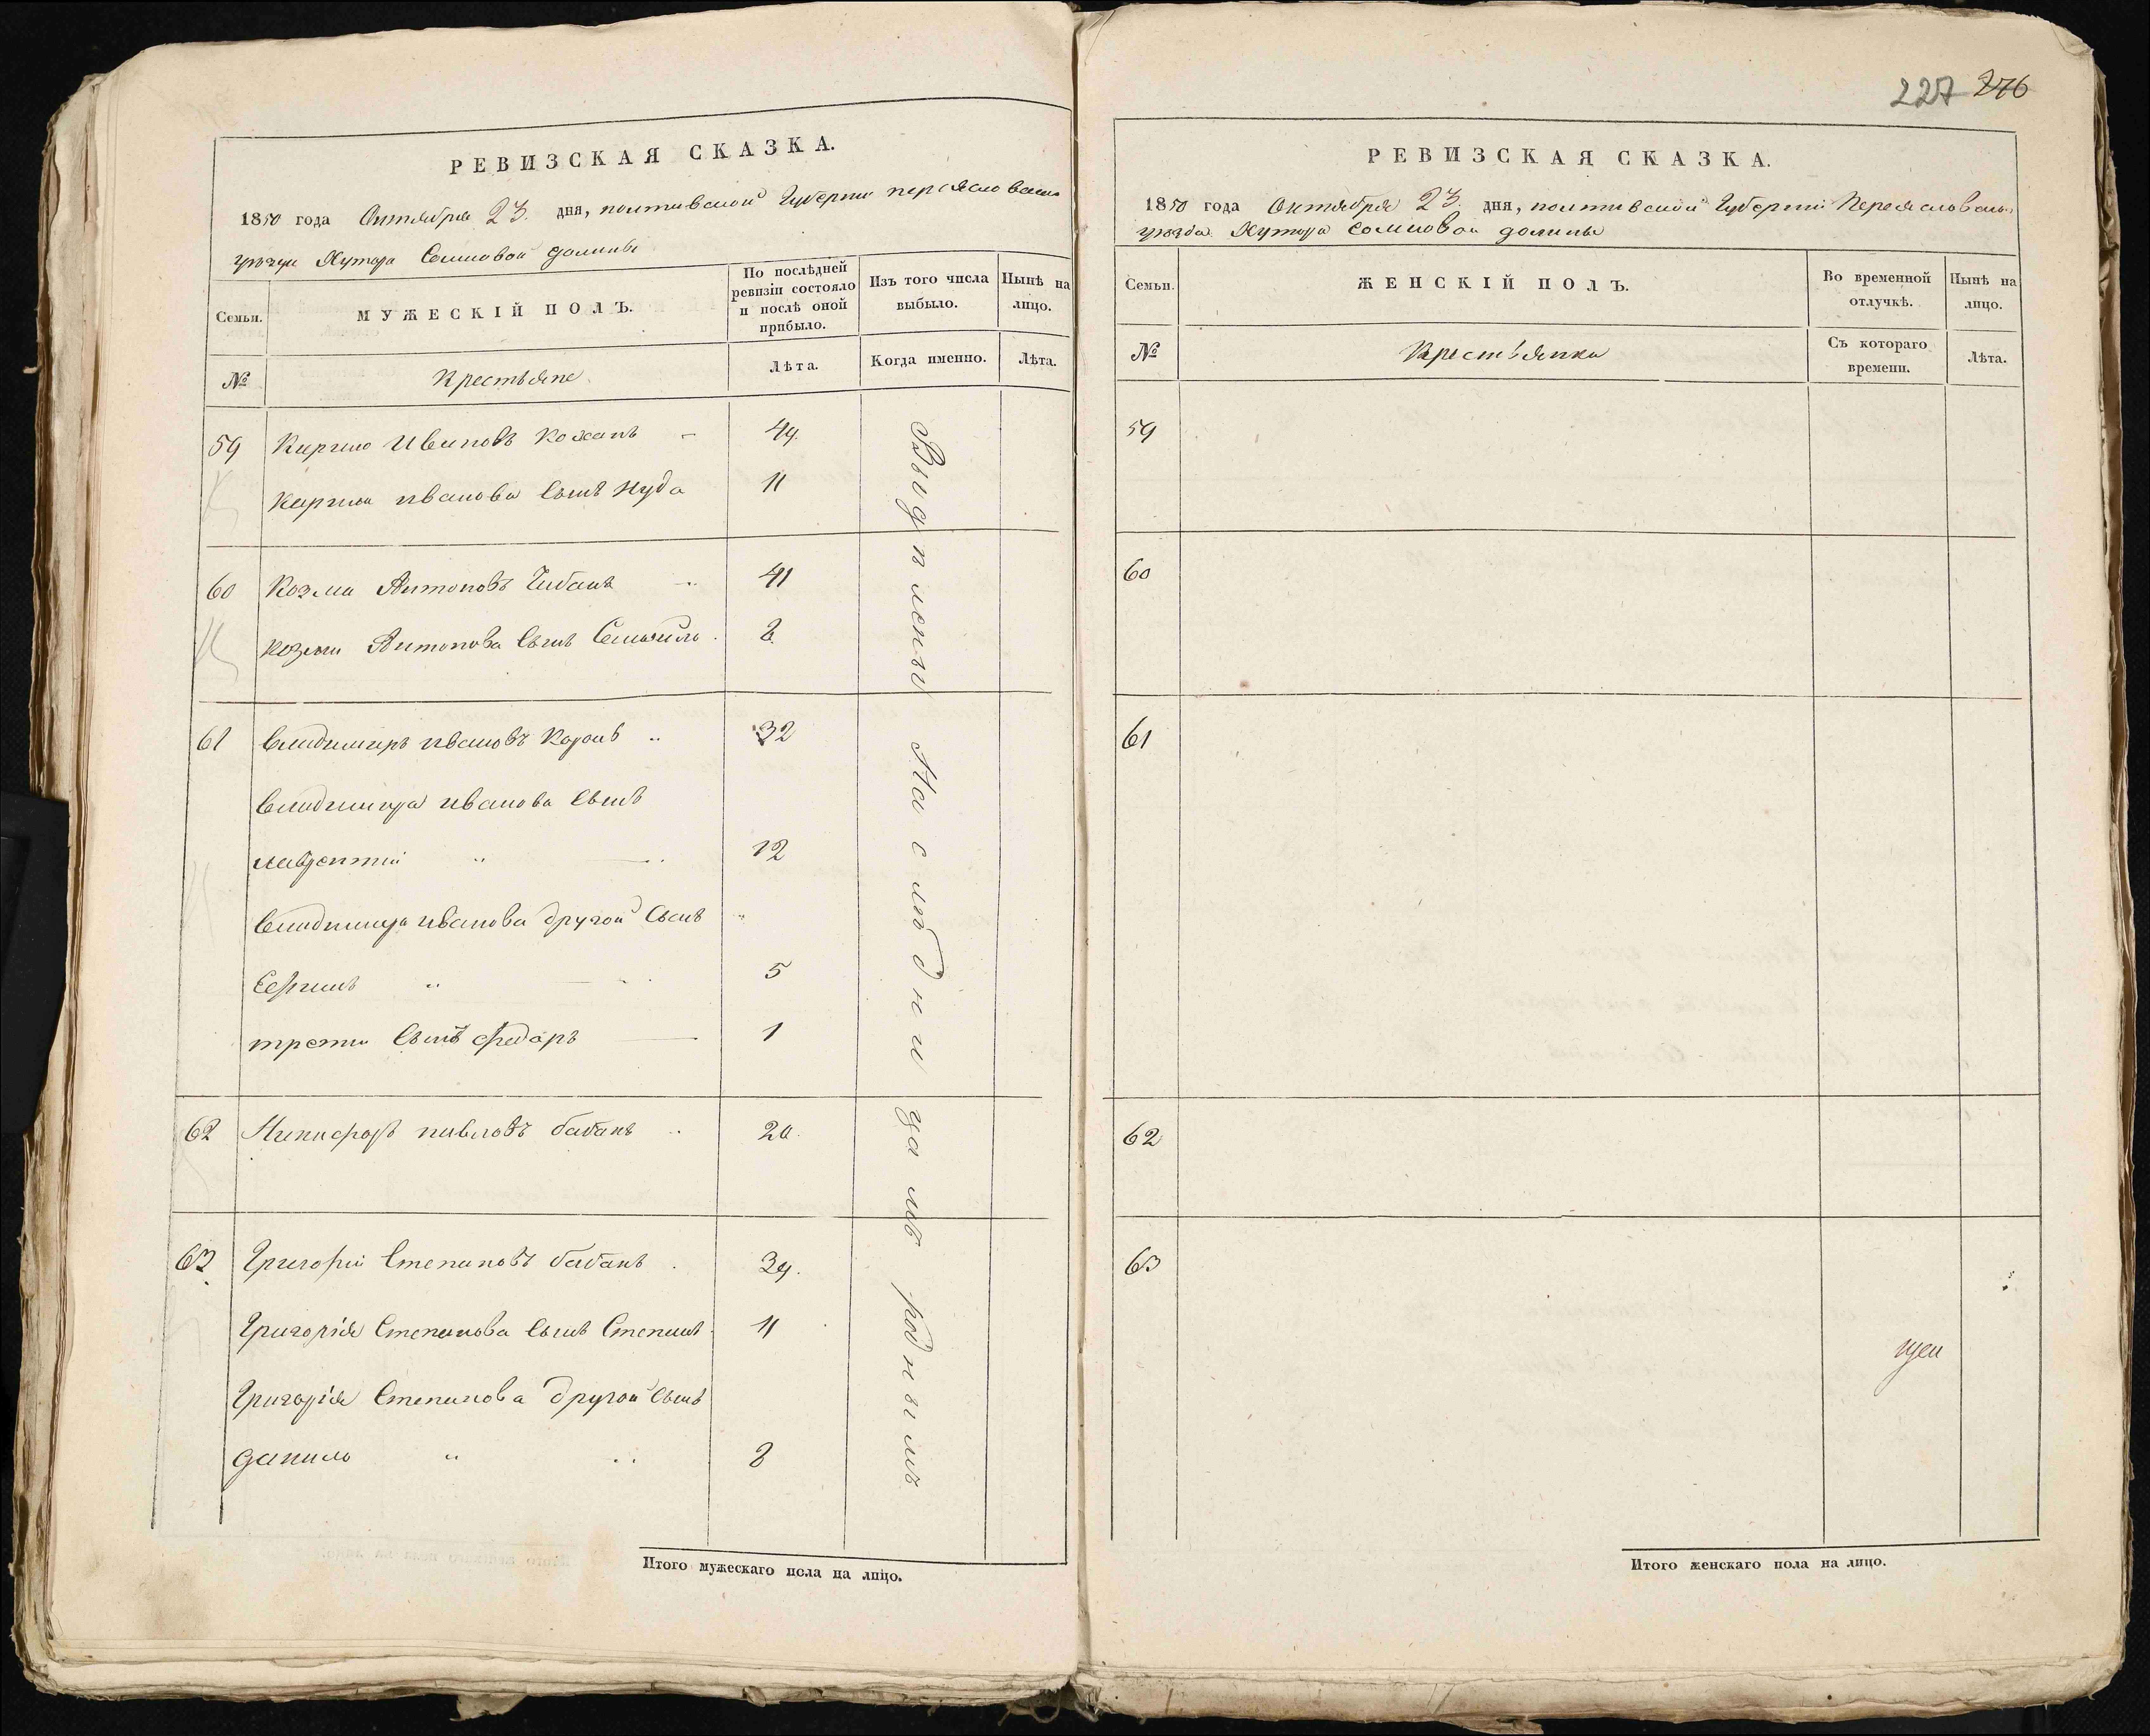 227 276
РЕВИЗСКАЯ СКАЗКА.
1850 года Октября 23. дня, полтавской Губернии переясловскаго
уезда Хутора Сомковой долины
Семьи.
МУЖЕСКІЙ ПОЛЪ.
По послѣдней ревизіи состояло и послѣ оной прибыло.
Изъ того числа выбыло.
Нынѣ на лицо.
№
Крестьяне
Лѣта.
Когда именно.
Лѣта.
59 Кирило Ивановъ Кожанъ 49.
Кирила иванова Сынъ Иуда 11
60 Козма Антоновъ Чабанъ 41
Козмы Антонова Сынъ Самойло 8
61 Владимиръ ивановъ 32
Владимира иванова Сынъ
лаврентий 12
Владимира иванова другой Сынъ
5
трети Сынъ Федоръ 1
62 Никифоръ павловъ бабанъ 20.
63 Григорий Степановъ бабанъ 39.
Григорія Степанова Сынъ Степанъ 11
Григорія Степанова другой Сынъ
данило 8
Выделены Наследницамъ роднымъ
Итого мужескаго пола на лицо.
РЕВИЗСКАЯ СКАЗКА.
1850 года Октября 23. дня, полтавской Губернии Переясловск.
уезда Хутора Сомковой долины
Семьи.
ЖЕНСКІЙ ПОЛЪ.
Во временной отлучкѣ.
Нынѣ на лицо.
№
Крестьянки
Съ котораго времени.
Лѣта.
59
60
61
62
63
Итого женскаго пола на лицо.